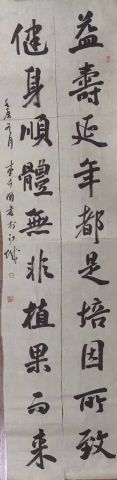 益壽延年都是培因所致
健身順體無非植果而来